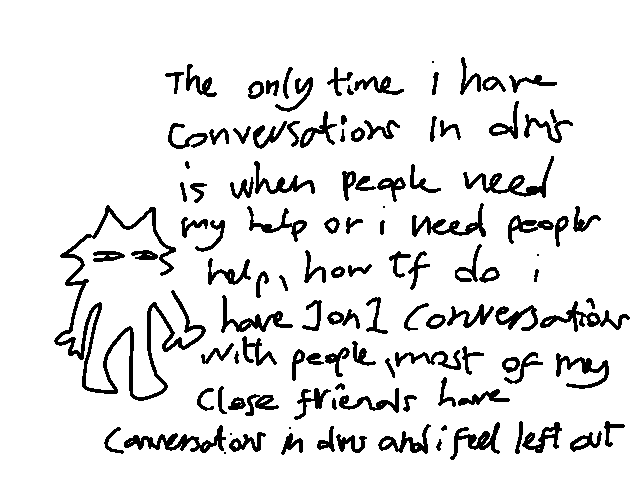 The only time i have
conversations in dms
is when people need
my help or i need people
help, how tf do i
have 1 on 1 conversations
with people, most of my
close friends have
conversations in dms and i feel left out